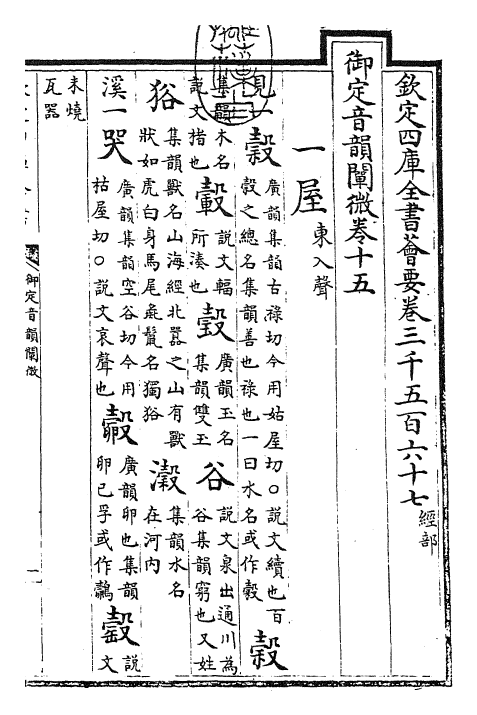 欽定四庫全書薈要卷三千五百六十七 經部
御定音韻闡微卷十五
一屋 東入聲
見一 穀 廣韻集韻古祿切今用姑屋切○說文續也百
穀之總名集韻善也祿也一曰水名或作糓 榖
集韻木名
說文楮也 轂 說文輻
所湊也 瑴 廣韻玉名
集韻雙玉 谷 說文泉出通川為
谷集韻窮也又姓
㹱 集韻獸名山海經北嚻之山有獸
狀如虎白身馬尾彘鬛名獨㹱 瀔 集韻水名
在河內
溪一 哭 廣韻集韻空谷切今用
枯屋切○說文哀聲也 㱿 廣韻卵也集韻
卵已孚或作鷇 㲄 說
文
未燒
瓦器
御定音韻闡微
一